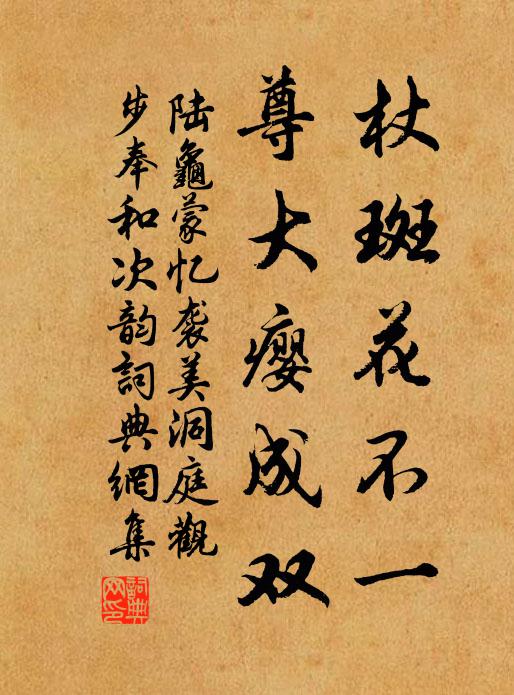 杖斑花不一
尊大瘿成双
陆龜蒙忆袭美洞庭觀
步奉和次韵詞典網集
詞典网印